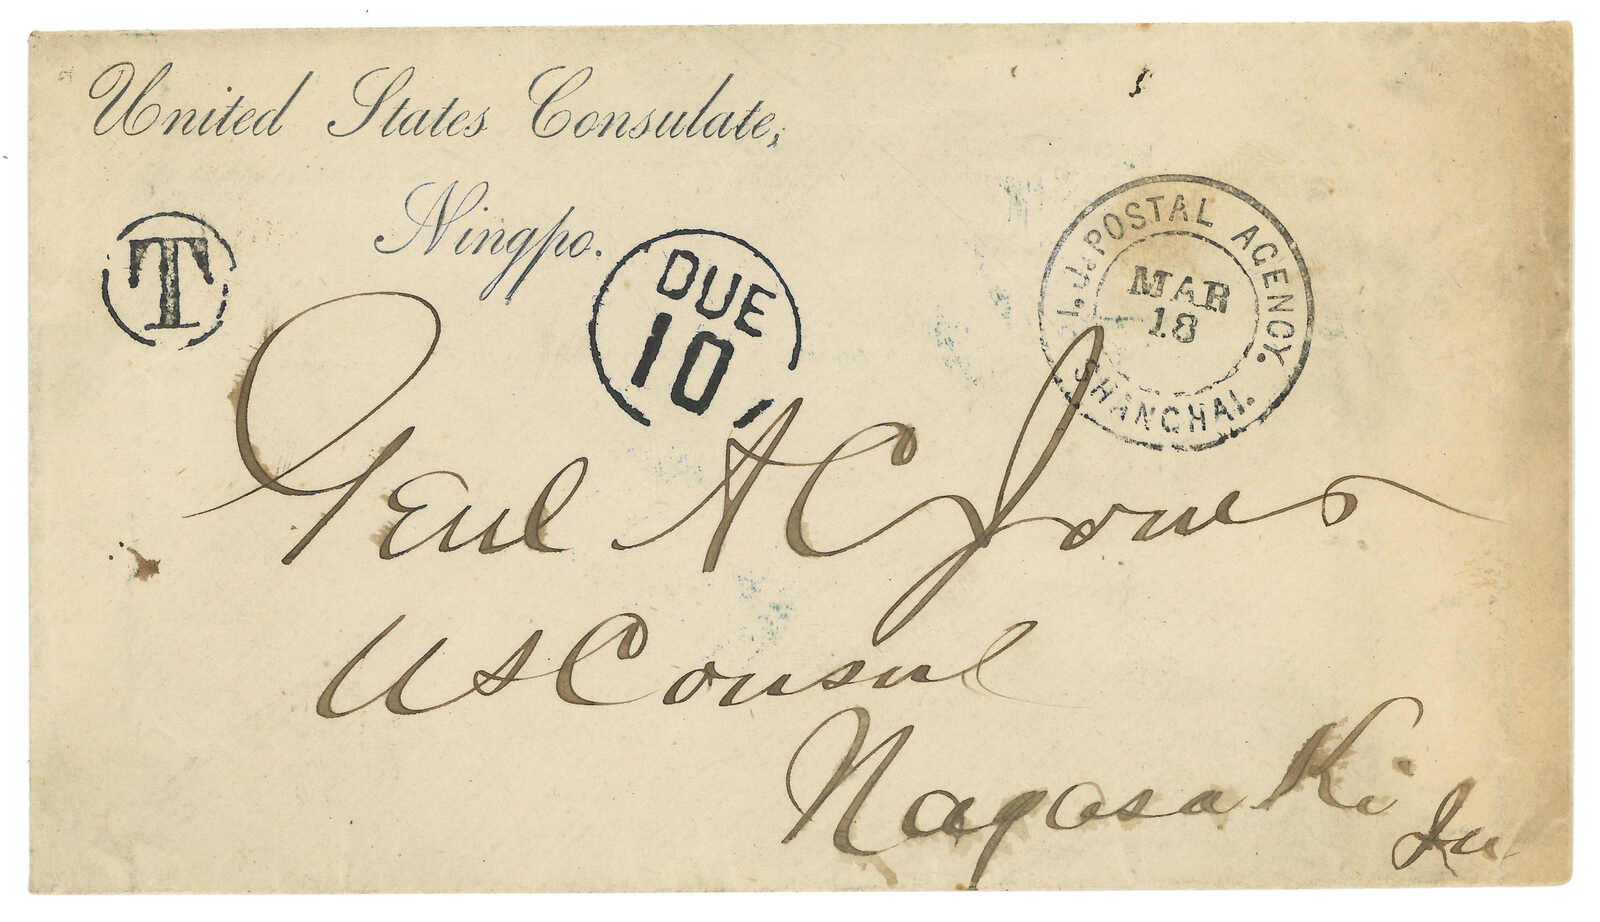 United States Consulate,
Ningpo.
T
DUE
10
I.J. POSTAL AGENCY.
MAR
18
SHANGHAI.
Genl A C Jones
US Consul
Nagasaki